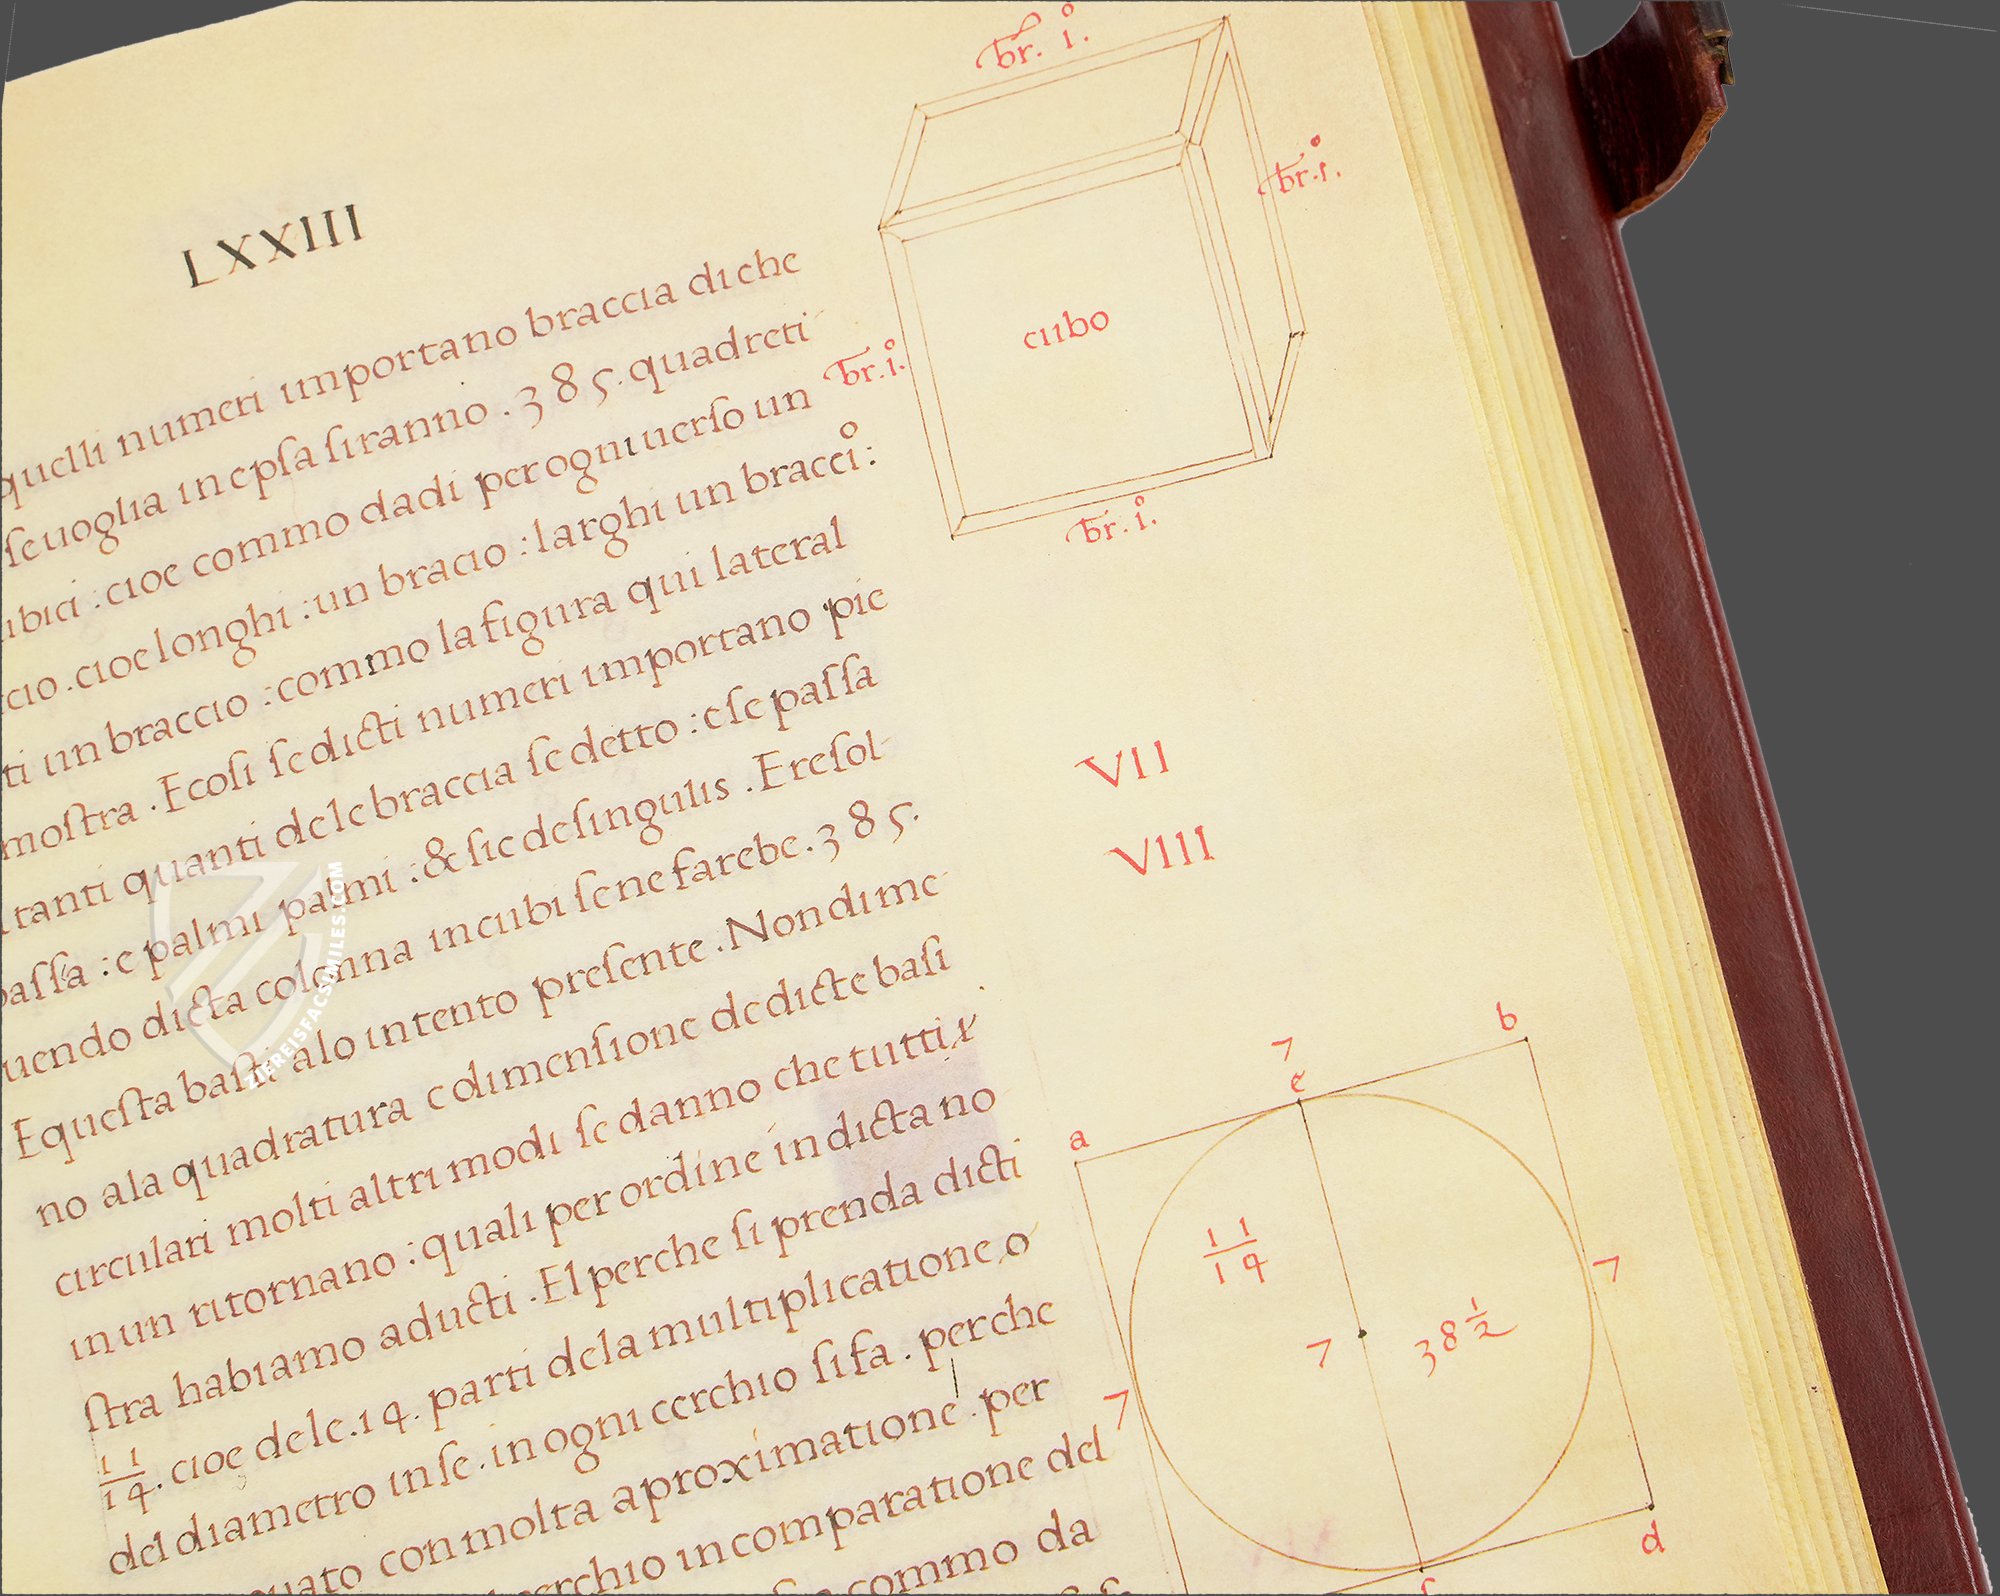 LXXIII
quelli numeri importano braccia di che
se uoglia in epsa siranno . 385. quadreti
ubici : cioe commo dadi per ogni uerso un
ccio . cioe longhi : un bracio : larghi un bracci°:
ti un braccio : commo la figura qui lateral
mostra . E cosi se dicti numeri importano pie
tanti quanti dele braccia se detto : e se passa
passa : e palmi palmi : & sic de singulis . E resol-
uendo dicta colonna in cubi se ne farebe . 385.
E questa basti alo intento presente . Non di me
no ala quadratura e dimensione de dicte basi
circulari molti altri modi se danno che tutti
in un ritornano : quali per ordine in dicta no
stra habiamo aducti . El perche si prenda dicti
11/14 . cioe dele . 14. parti dela multiplicatione
del diametro in se . in ogni cerchio si fa . perche
uato con molta aproximatione . per
cerchio in comparatione del
commo da
br. i°.
br. i°.
br. i°.
cubo
br. i°.
VII
VIII
a
7
e
b
11/14
7
7
38 1/2
7
d
f
ZIEREISFACSIMILES.COM